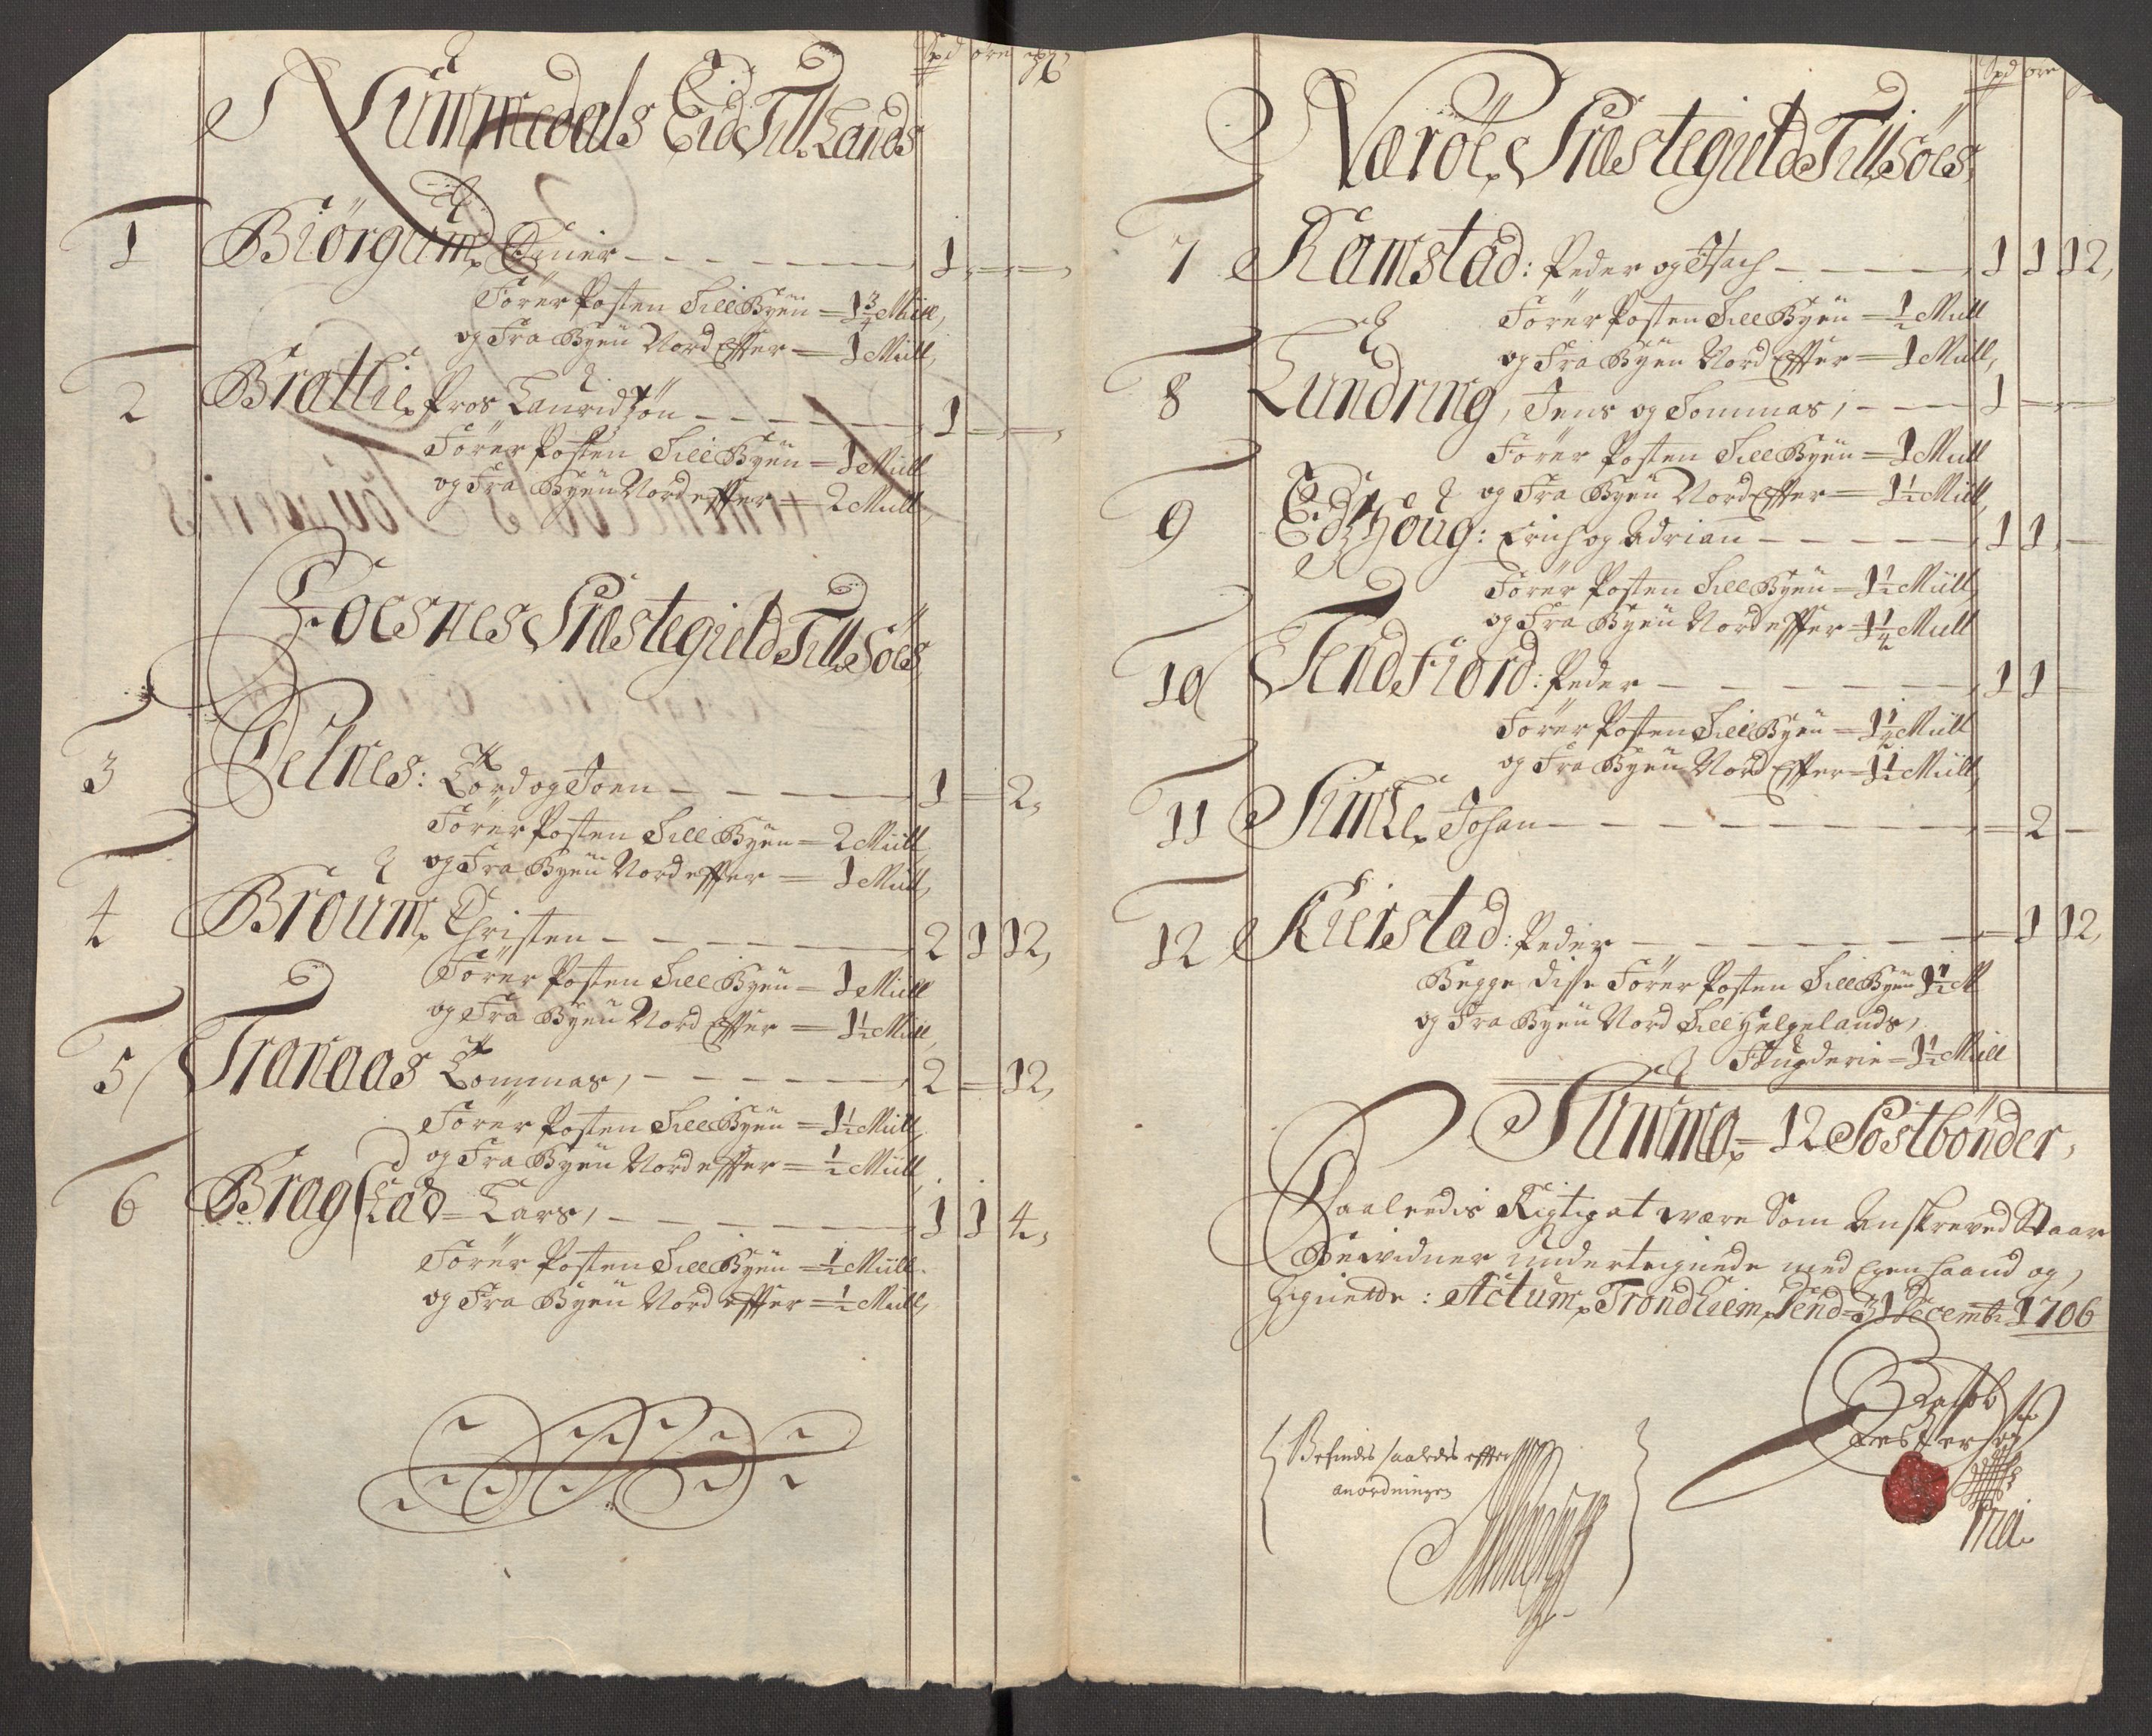 Spd ore
Nummedals Eid Till Lands
1 Biörgum, Einer 1
Förer Posten Till Byen = 1 3/4 Miill,
og Fra Byen Nord Effter = 1 Miill,
2 Brattlie, Pros Lauridzön 1
Förer Posten Till Byen = 1 Miill
og Fra Byen Nord effter = 2 Miill,
Foesnes Præstegield Till Söes
3 Selnes: Tord og Joen 1 = 2,
Förer Posten Till Byen = 2 Miill,
og Fra Byen Nord effter = 1 Miill,
4 Broum, Christen 2 1 12,
Förer Posten Till Byen = 1 Miill
og Fra Byen Nord Effter = 1 1/2 Miill,
5 Tranaas Tommas, 2 = 12,
Förer Posten Till Byen = 1 1/2 Miill,
og Fra Byen Nord effter = 1/2 Miill,
6 Bragstad = Lars, 1 1 4,
Förer Posten Till Byen = 1/2 Miill.
og Fra Byen Nord effter = 1/2 Miill,
Spd ore
Næröe, Præstegield Till Söes,
7 Ramstad: Peder og Isach 1 1 12,
Förer Posten Till Byen = 1/2 Miill
og Fra Byen Nord Effter = 1 Miill,
8 Lundring, Jens og Tommas, 1
Förer Posten Till Byen = 1 Miill
og Fra Byen Nord Effter = 1 1/2 Miill,
9 Eidzhoug: Erich og Adrian 1 1
Förer Posten Till Byen = 1 1/2 Miill,
og Fra Byen Nord effter = 1 1/4 Miill
10 Sendfiord: Peder 1 1
Förer Posten Till Byen = 1 1/4 Miill
og Fra Byen Nord Effter = 1 1/2 Miill,
11 Simle, Johan = 2
12 Kierstad: Peder = 1 12,
Begge disse Förer Posten Till Byen 1 1/2 M
og Fra Byen Nord Till Helgelands,
Fougderie = 1 1/2 Miill
Summa = 12 Postbönder,
Saaledis Rigtig at være Som Anskreved Staar
Bevidner undertegnede med Egen haand og
Zignette: Actum, Trondhiem, Dend = 31 Decembr 1706
Befindes saaledes effter
anordningen